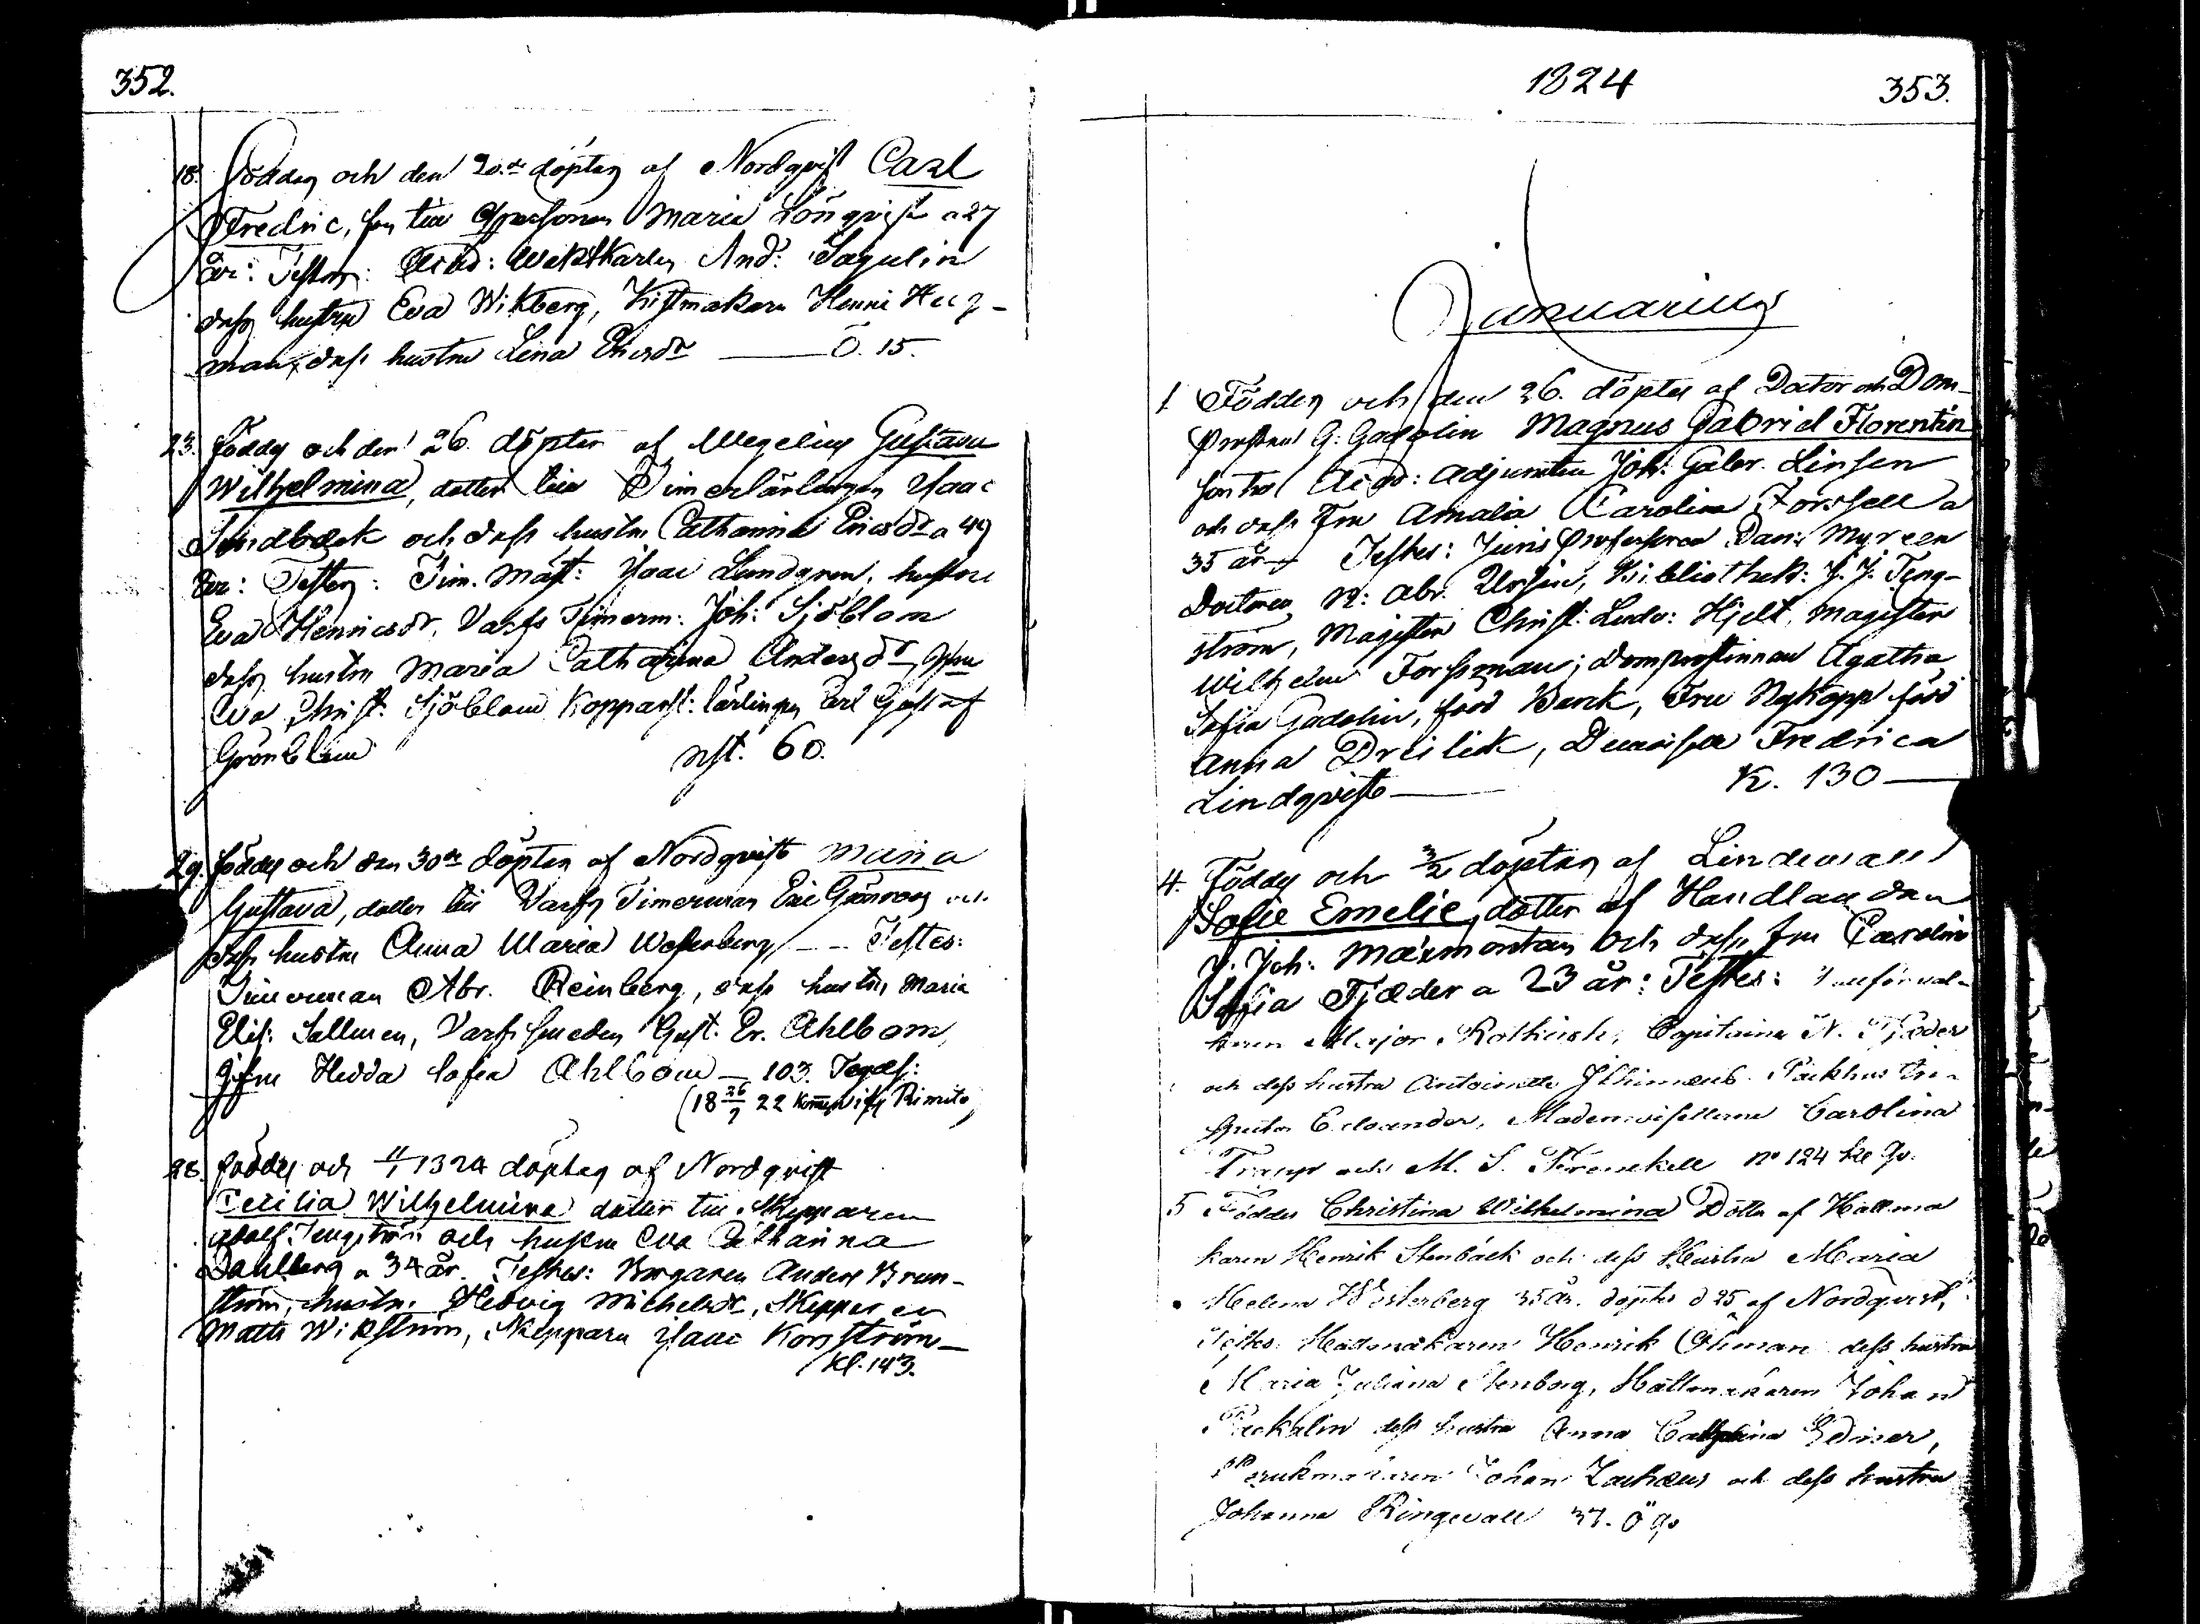 352.
18. Födder och den 20.de döpter af Nordqvist Carl
Fredric, son till Qpersonen Maria Lönqvist a 27
år: Testes: Acad: Waktkarlen And: Sagulin
dess hustru Eva Wikberg, Kistmakarn Henric Heg-
man, dess hustru Lina Ericsdr — Ö. 15.
23. födder och den 26. döpter af Wegelius Gustava
Wilhelmina, dotter till Timerlärlingen Isaac
Sandbäck och dess hustru Catharina Ericsdr a 49
år: Testes: Tim. Mäst: Isaac Lundgren, hustru
Eva Henricsdr, Varfs Timerm: Joh: Sjöblom
dess hustru Maria Catharina Andersdr, Jgfru
Eva Christ: Sjöblom Kopparsl: lärlingen Carl Gustaf
Grönblom nst. 60.
29. födder och den 30de döpter af Nordqvist Maria
Gustava, dotter till Varfs Timerman Eric Grönroos och
dess hustru Anna Maria Westerberg — Testes:
Timerman Abr. Reinberg, dess hustru Maria
Elis: Sallmen, Varfs smeden Gust. Er. Ahlbom,
Jgfru Hedda Sofia Ahlbom — 103. Tegels:
(18 26/7 22 Rimito)
28. födder och 11/1 1824 döpter af Nordqvist
Cecilia Wilhelmina dotter till Skepparen
Adolf Tengström och hustru Eva Catharina
Dahlberg a 34 år. Testes: Borgaren Anders Brun-
ström, hustru Hedvig Michelsdr, Skepparen
Matts Wikström, Skepparn Isaac Korsström —
Kl. 143.
1824 353.
Januarius
1 Födder och den 26. döpter af Doctor och Dom-
Prosten G: Gadolin Magnus Gabriel Florentin
son til Acad: Adjuncten Joh: Gabr. Linsen
och dess Fru Amalia Carolina Forssell a
35 år — Testes: Juris Professorn Dan: Myreen
Doctorn N: Abr. Ursin, Bibliothek: J. J. Teng-
ström, Magister Christ: Ludv: Hjelt, Magister
Wilhelm Forssman; Domprostinnan Agatha
Sofia Gadolin, född Barck, Fru Nykopp född
Anna Dreilick, Demoiselle Fredrica
Lindqvist — K. 130 —
4. Födder och 3/2 döpter af Lindeman
Sofie Emelie, dotter af Handlanden
J: Joh: Marmontan och dess fru Carolina
Sofia Tjæder a 23 år: Testes:
Major Rotkirch, Capitaine N. Tjæder
och dess hustru Antoinette Packhus In-
spector Elvander, Mademoisellerna Carolina
Trapp och M. S. Frenckell No 124 Kl Qv.
5 Föddes Christina Wilhelmina Dotter af Hattma
karen Henrik Stenbäck och dess Hustru Maria
Helena Westerberg 35 år. döptes d 25 af Nordqvist,
Testes: Hattmakaren Henrik Öhman dess hustru
Maria Juliana Stenborg, Hattmakaren Johan
dess hustru Anna Catharina
Perukmakaren Johan Zachæus och dess hustru
Johanna Ringevall 37. Ö Qv